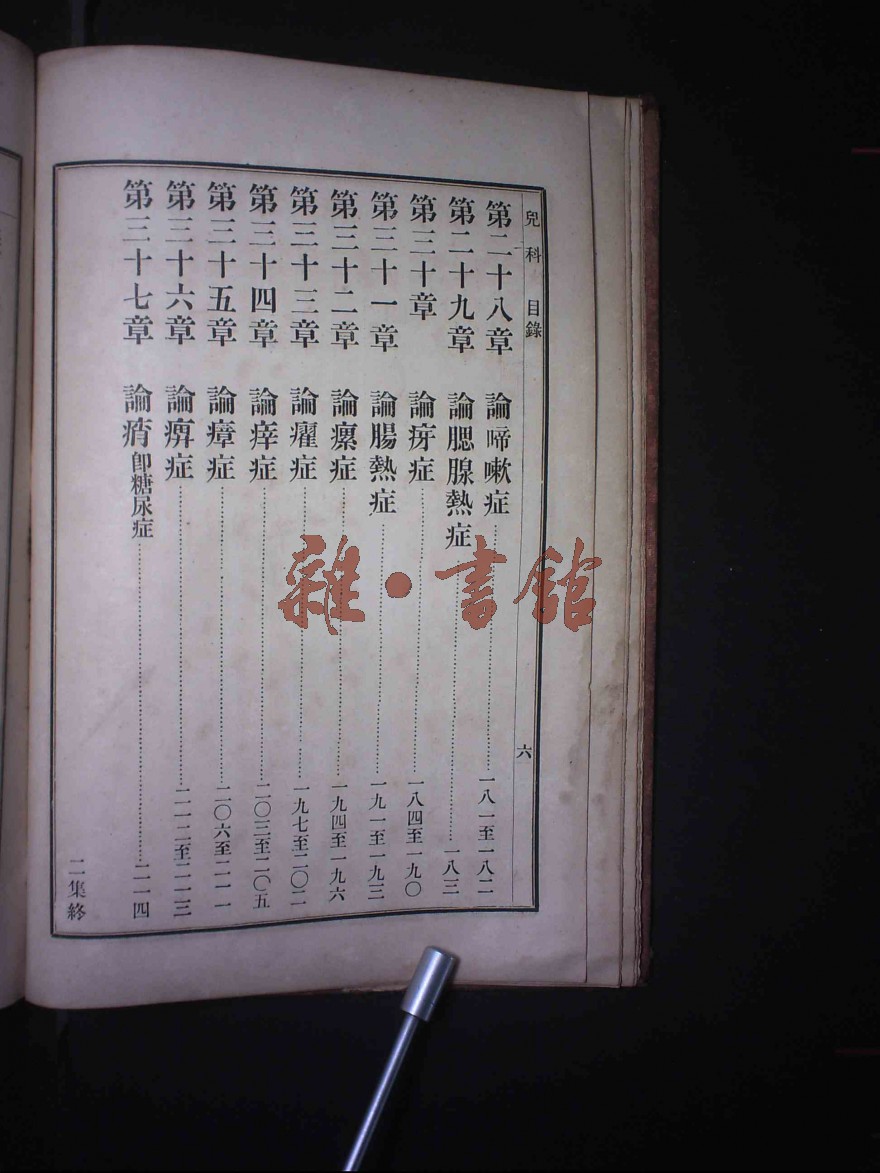 兒科 目錄 六
第二十八章 論啼嗽症 一八一至一八二
第二十九章 論腮腺熱症 一八三
第三十章 論疨症 一八四至一九〇
第三十一章 論腸熱症 一九一至一九三
第三十二章 論瘰症 一九四至一九六
第三十三章 論癯症 一九七至二〇二
第三十四章 論㾕症 二〇三至二〇五
第三十五章 論瘴症 二〇六至二一一
第三十六章 論痹症 二一二至二一三
第三十七章 論痟卽糖尿症 二一四
二集終
雜·書館